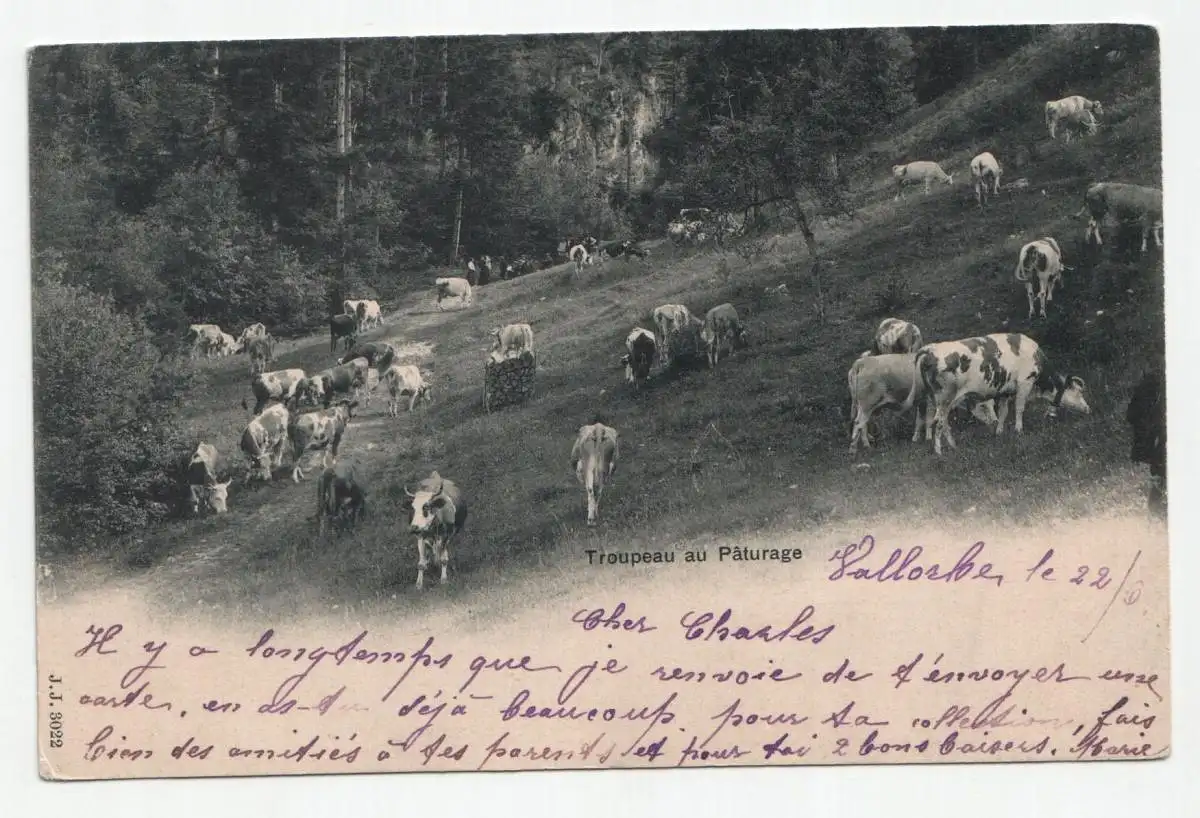 Troupeau au Pâturage
Vallorbe, le 22/6
Cher Charles
Il y a longtemps que je renvoie de t'envoyer une
carte, en as-tu déjà beaucoup pour ta collection, fais
bien des amitiés à tes parents et pour toi 2 bons baisers. Marie
J.J. 3022